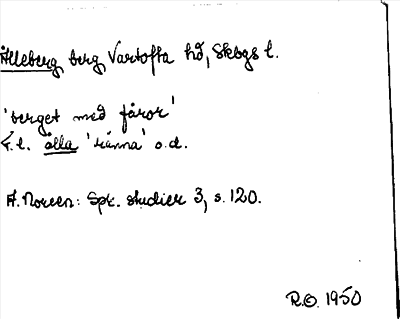 Ålleberg, berg, Vartofta hd, Skbgs l.
'berget med fåror'
F.l. ålla 'ränna' o.d.
A. Noreen: Spr. studier 3, s. 120.
R.O. 1950